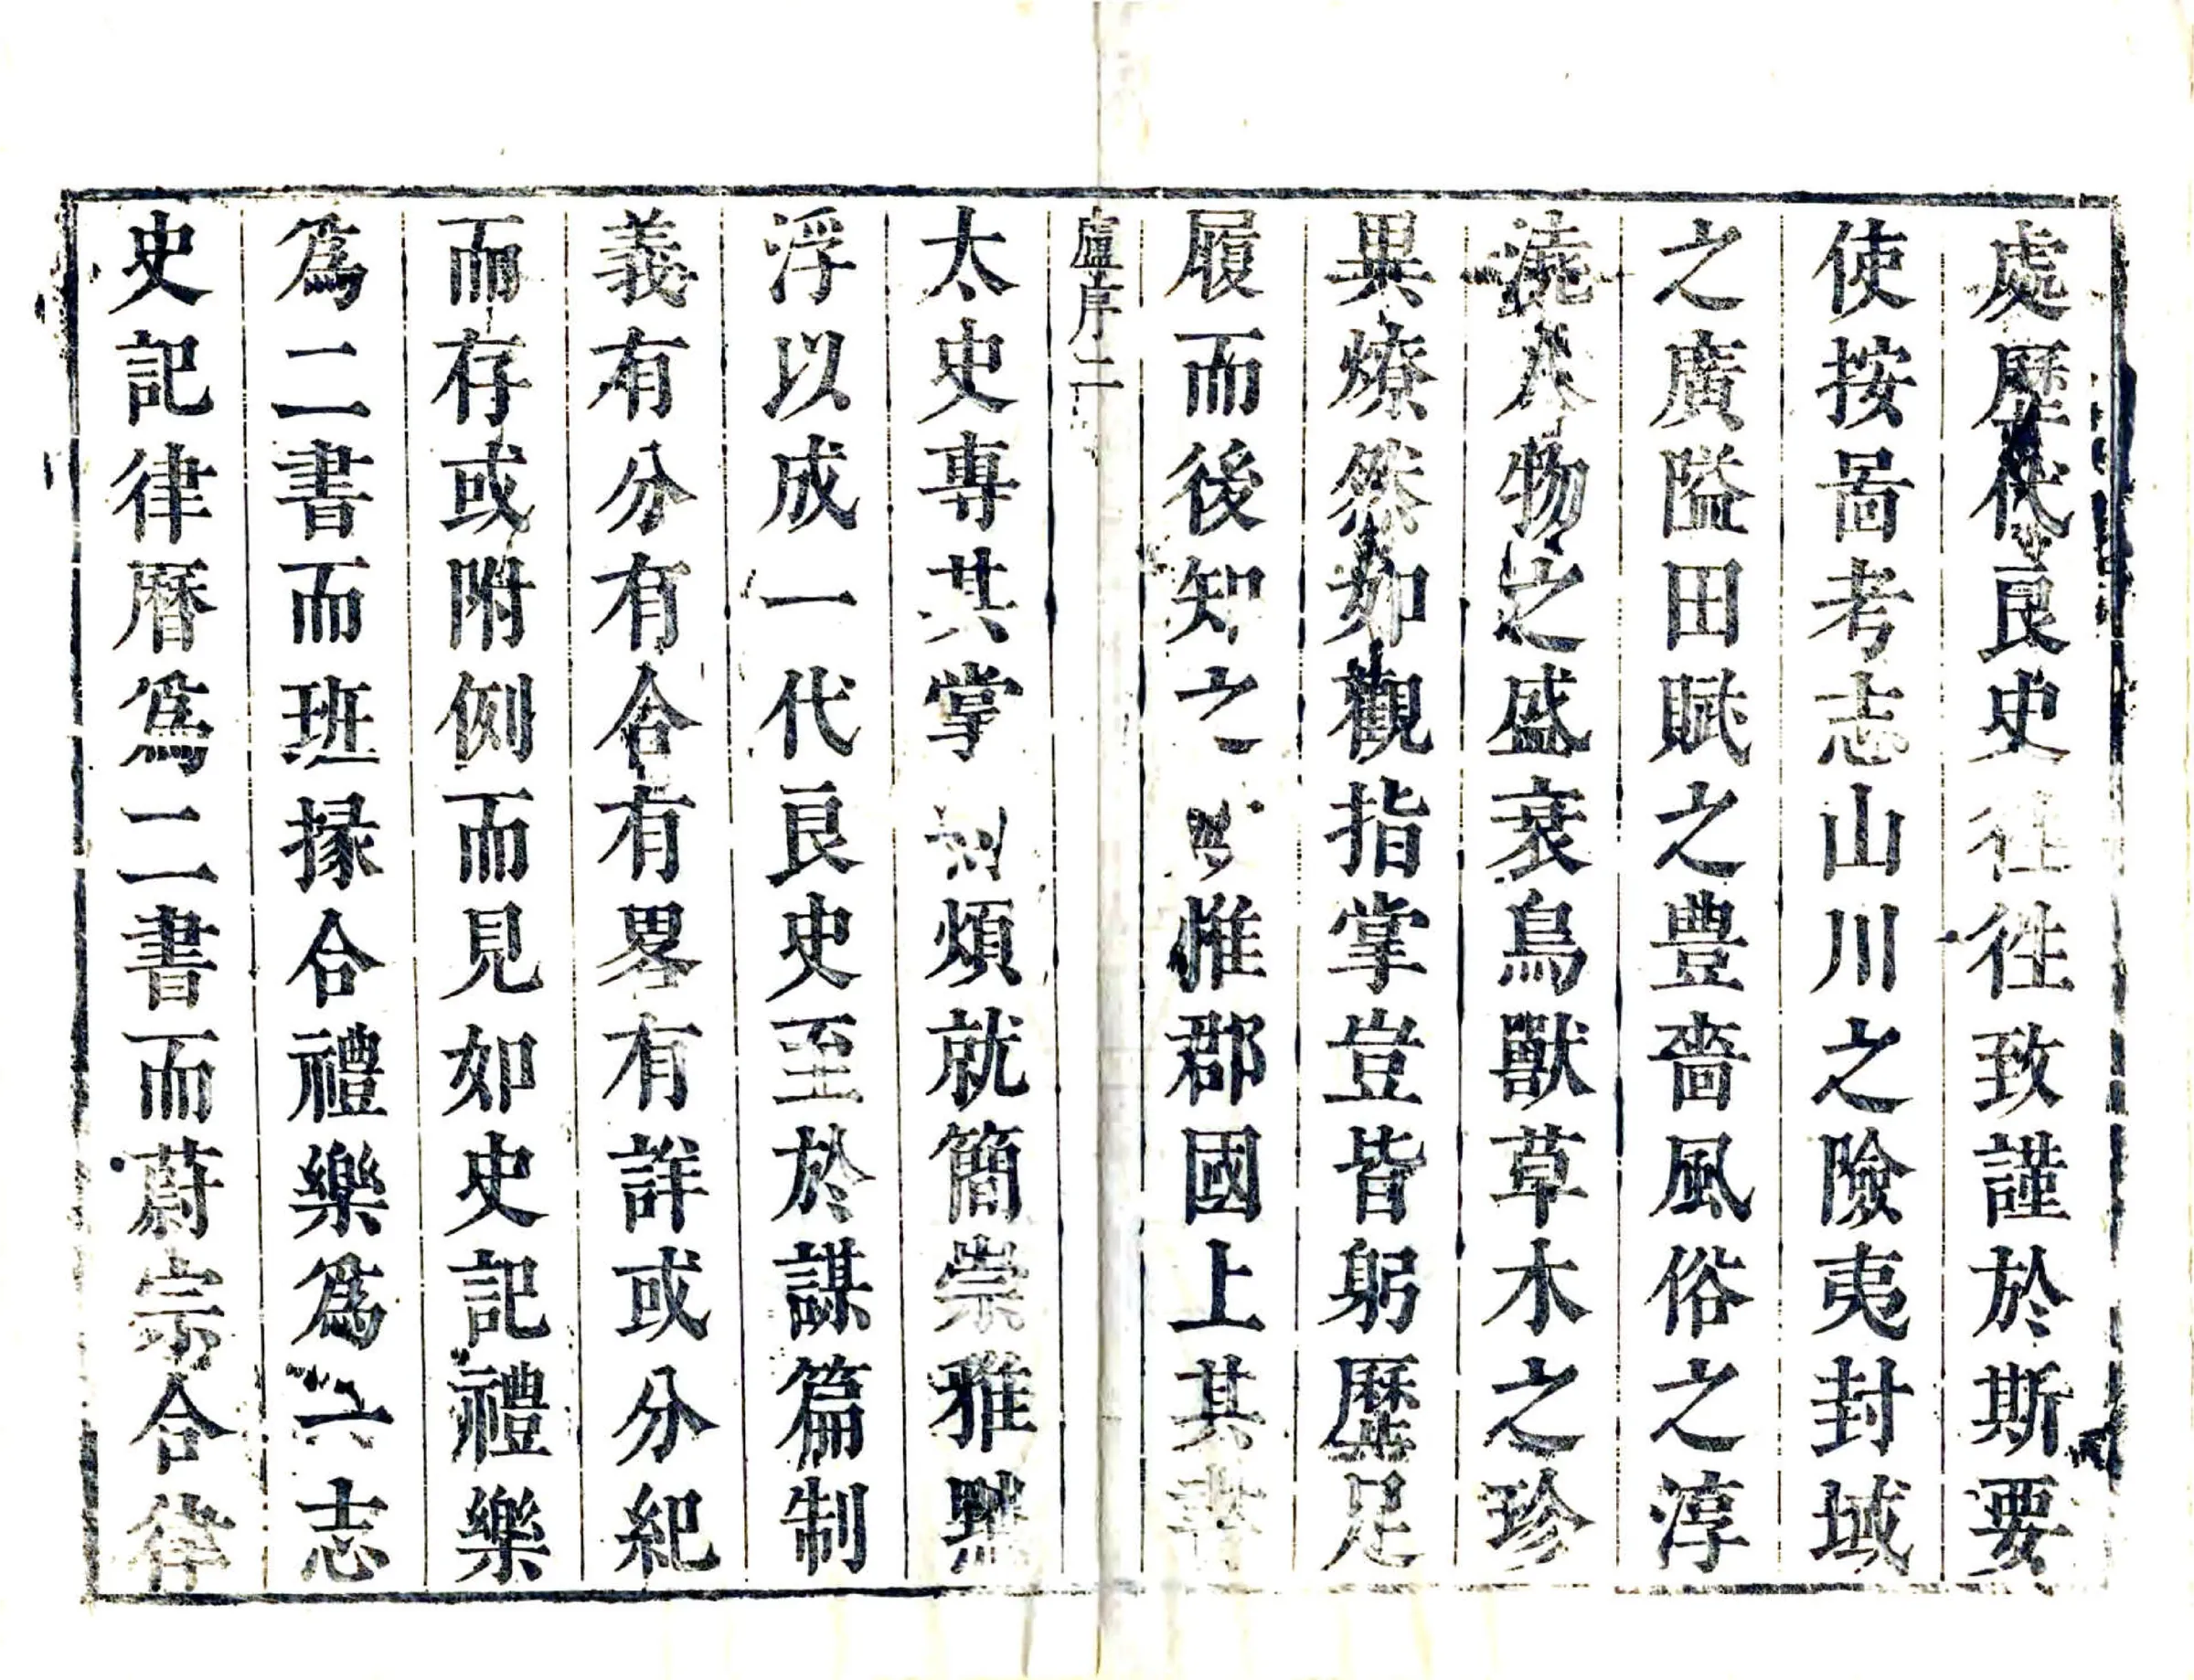 處歷代良史往徃致謹於斯要
使按啚考志山川之險夷封域
之廣隘田賦之豊啬風俗之淳
澆人物之盛衰鳥獸草木之珍
異燎然如觀指掌豈皆躬歷足
履而後知之惟郡國上其書
盧序二
太史專其掌煩就簡崇雅黜
浮以成一代良史至於謀篇制
義有分有合有畧有詳或分紀
而存或附例而見如史記禮樂
爲二書而班掾合禮樂爲一志
史記律曆爲二書而蔚宗合律